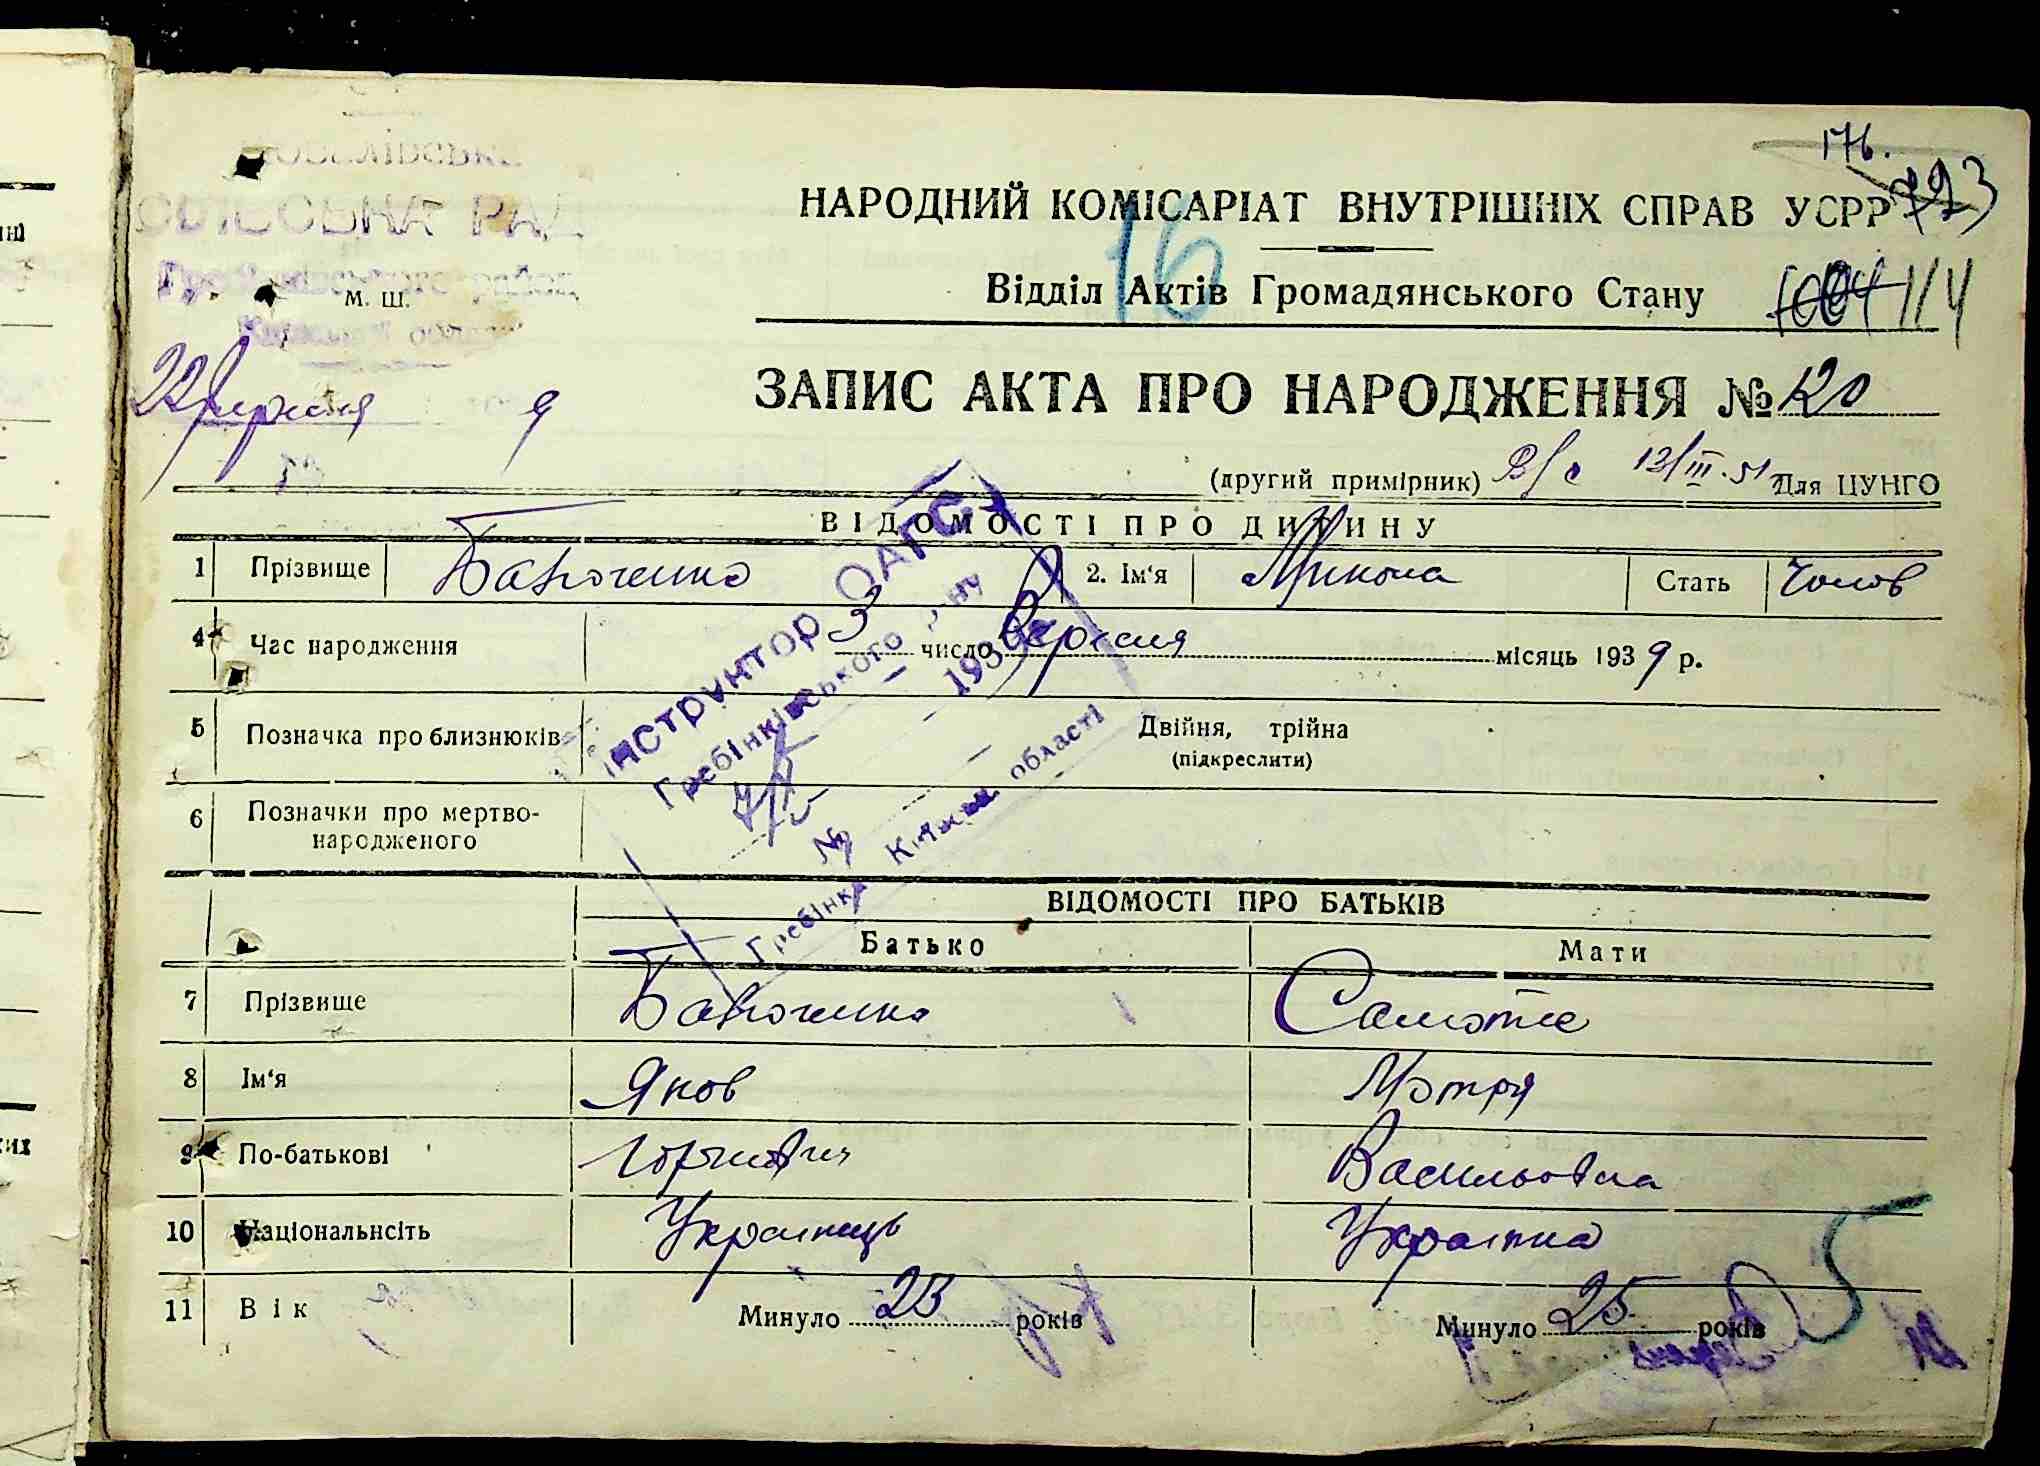 176.
723
НАРОДНИЙ КОМІСАРІАТ ВНУТРІШНІХ СПРАВ УСРР
16
СІЛЬСЬКА РАДА
м. ш.
Відділ Актів Громадянського Стану
114
22 вересня 9
ЗАПИС АКТА ПРО НАРОДЖЕННЯ № 120
(другий примірник) В/с 12/III.51 Для ЦУНГО
ВІДОМОСТІ ПРО ДИТИНУ
1 Прізвище 2. Ім'я Микола Стать Чолов
4 Час народження 3 число Вересня місяць 1939 р.
5 Позначка про близнюків Двійня, трійна
(підкреслити)
6 Позначки про мертво-
народженого
Інструктор ОАГС
Гребінківського р-ну
193
№
Гребінка Київськ. області
ВІДОМОСТІ ПРО БАТЬКІВ
Батько Мати
7 Прізвище
8 Ім'я Яков Мотря
9 По-батькові Васильовна
10 Національнсіть Українець Українка
11 Вік Минуло 23 років Минуло 25 років
5